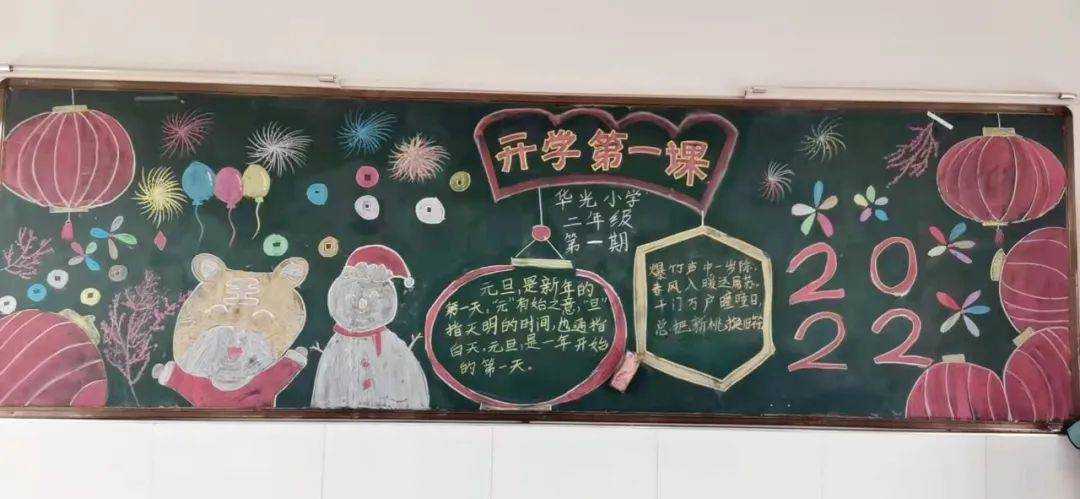 开学第一课
华光小学
二年级
第一期
元旦,是新年的
第一天,"元"有始之意,"旦"
指天明的时间,也通指
白天,元旦,是一年开始
的第一天。
爆竹声中一岁除,
春风入暖送屠苏。
千门万户曈曈日,
总把新桃换旧符
20
22
王